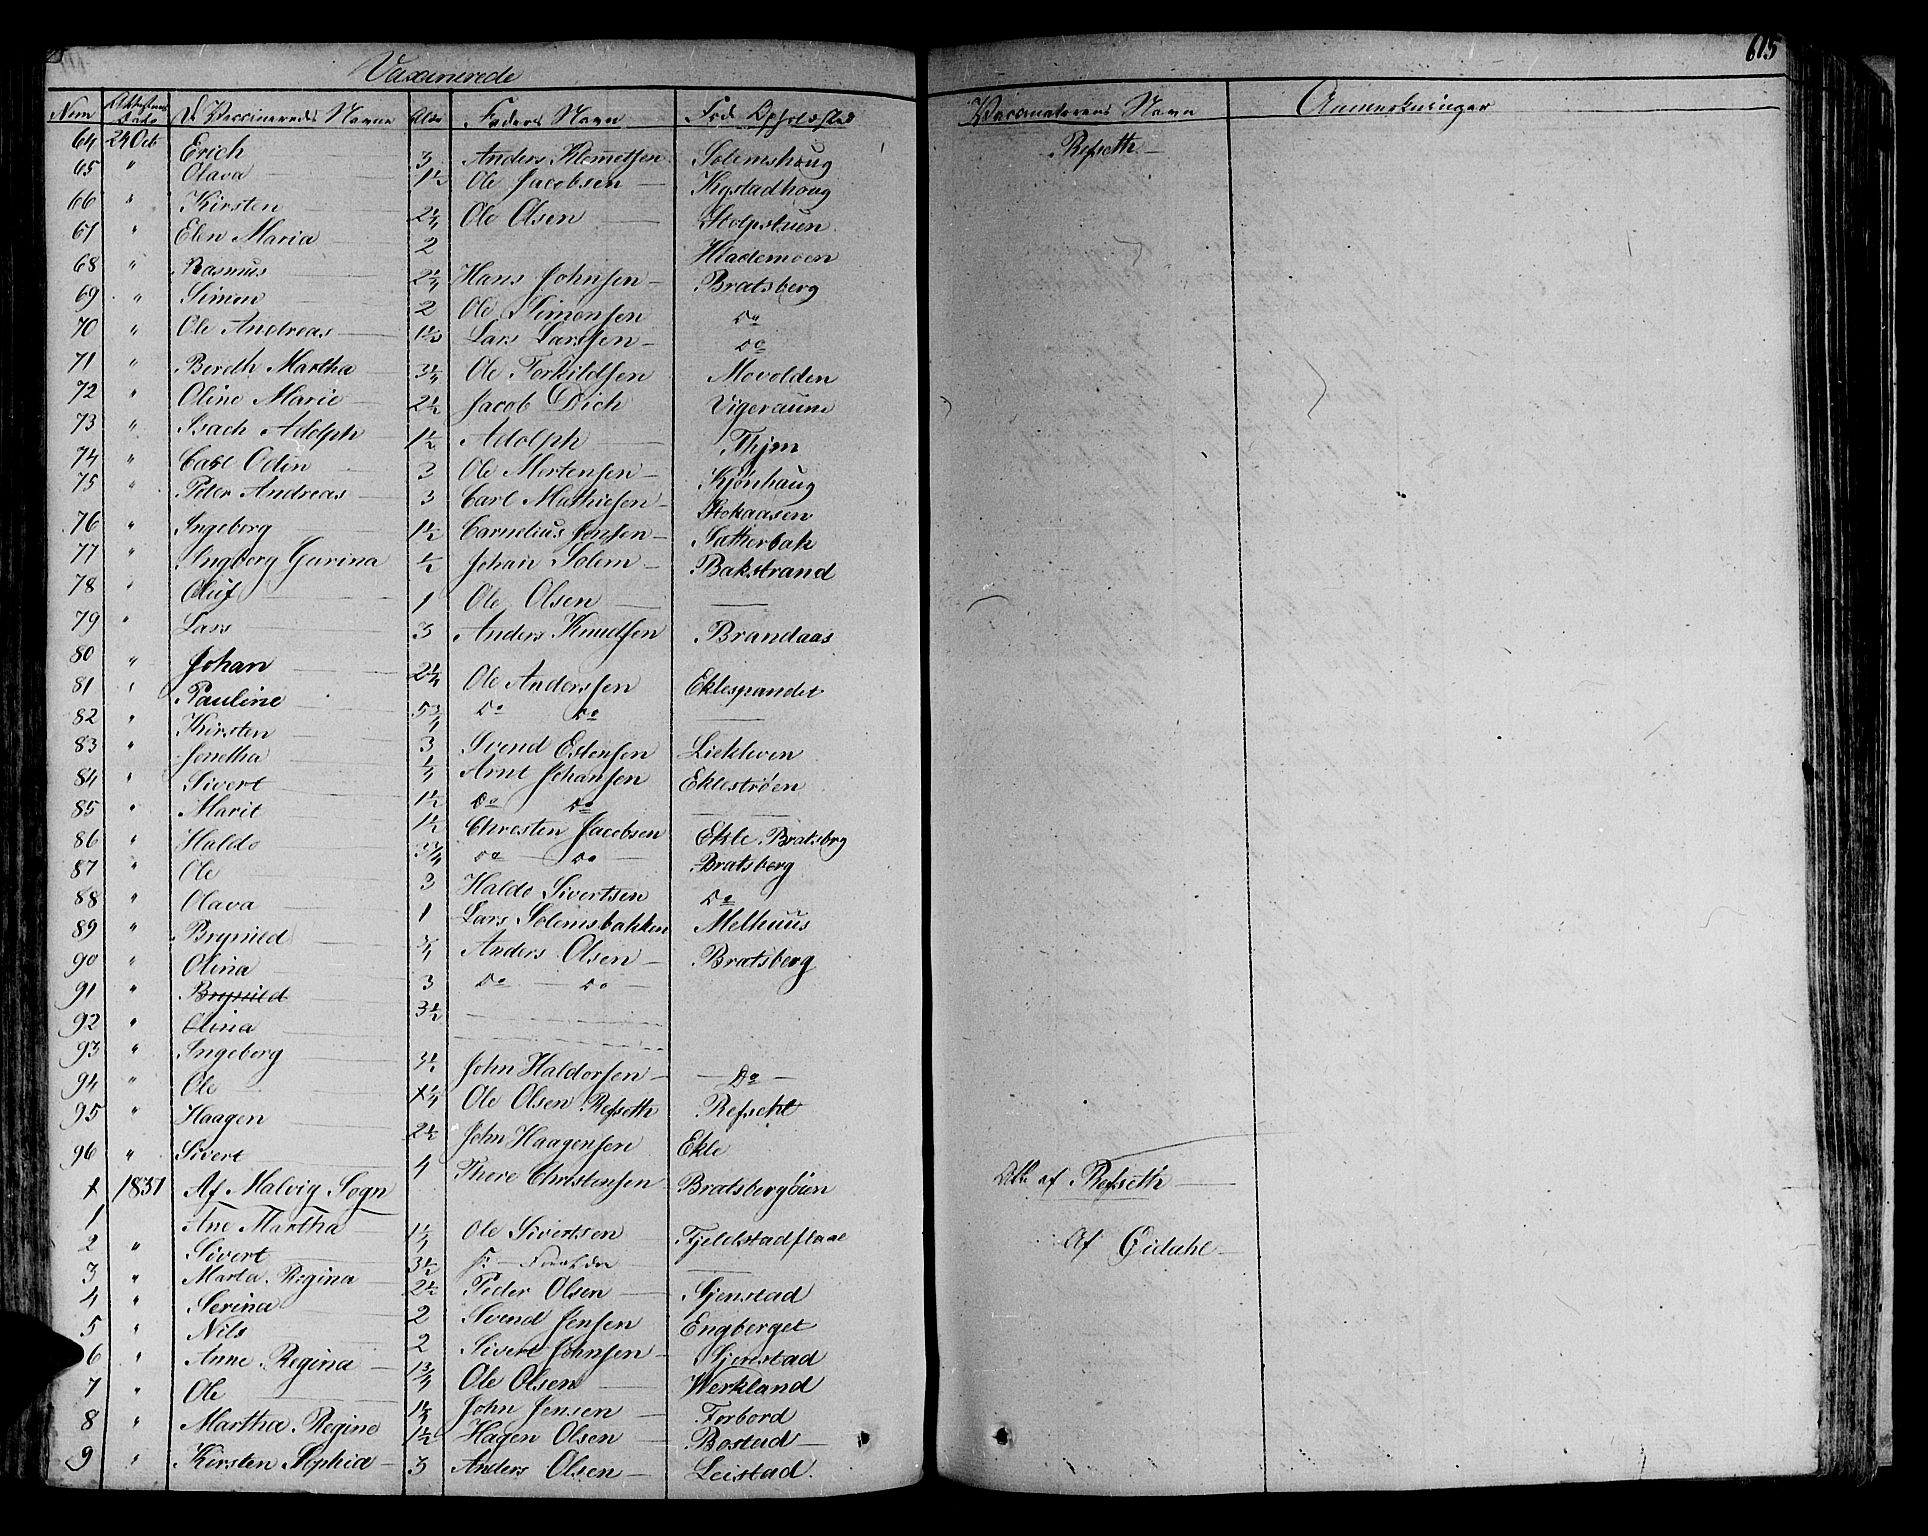 Vaxinerede
615
Num Attestens Dato De Vaccineredes Navne Alder Faders Navn Opholdsted Vaccinatorens Navn Anmerkninger
64 24 Oct Erich 3 Anders Klemetsen Solemshoug Refseth
65 " Olava 1½ Ole Jacobsen Kystadhoug
66 " Kirsten 2¼ Ole Olsen Stolpstuen
67 " Elen Maria 2 Hlademoen
68 " Rasmus 2¼ Hans Johnsen Bratsberg
69 " Simon 2 Ole Simonsen Do
70 " Ole Andreas 1½ Lars Larssen Do
71 " Bereth Martha 3¼ Ole Torkildsen Movolden
72 " Oline Marie 2½ Jacob Dich Vigeraune
73 " Isach Adolph 1½ Adolph Thjem
74 " Carl Odin 3 Ole Mortensen Kjönhaug
75 " Peter Andreas 3 Carl Mathiesen Stokaasen
76 " Ingeborg 1½ Cornelius Jensen Satherbak
77 " Ingborg Gurina ½ Johan Solem Bakstrand
78 " Oluf 1 Ole Olsen
79 " Lars 3 Anders Knudsen Brandaas
80 " Johan 2¼ Ole Anderssen Eklesplandet
81 " Pauline 5¾ Do Do
82 " Kirsten 3 Svend Estensen Liekleven
83 " Jonetha ¼ Arnt Johansen Eklestrøen
84 " Sivert 1½ Do Do
85 " Marit 1½ Chresten Jacobsen Ekle Bratsbrg
86 " Haldo 3¾ Do Do Bratsberg
87 " Ole 3 Haldo Sivertsen Do
88 " Olava 1 Lars Solemsbakken Melhuus
89 " Brynild ¾ Anders Olsen Bratsberg
90 " Olina 3 Do Do
91 " Brynild 3½
92 " Olina
93 " Ingeborg 3½ John Haldorsen Do
94 " Ole ¼ Ole Olsen Refseth Refseht
95 " Haagen 2½ John Haagensen Ekle
96 " Sivert 4 Thore Christensen Bratsbergöien Alle af Refseth
1837 Af Malvig Sogn
1 Ane Martha 1¼ Ole Sivertsen Fjeldstadflaae Af Eidahl
2 " Sivert 3½
3 " Marta Regina 2½ Peder Olsen Sjenstad
4 " Serina 2 Svend Jensen Engberget
5 " Nils 2 Sivert Johnsen Sjenstad
6 " Anne Regina 1¾ Ole Olsen Werkland
7 " Ole 1¼ John Jensen Forbord
8 " Martha Regine 1½ Hagen Olsen Bostad
9 " Kirsten Sophia 3 Anders Olsen Leistad